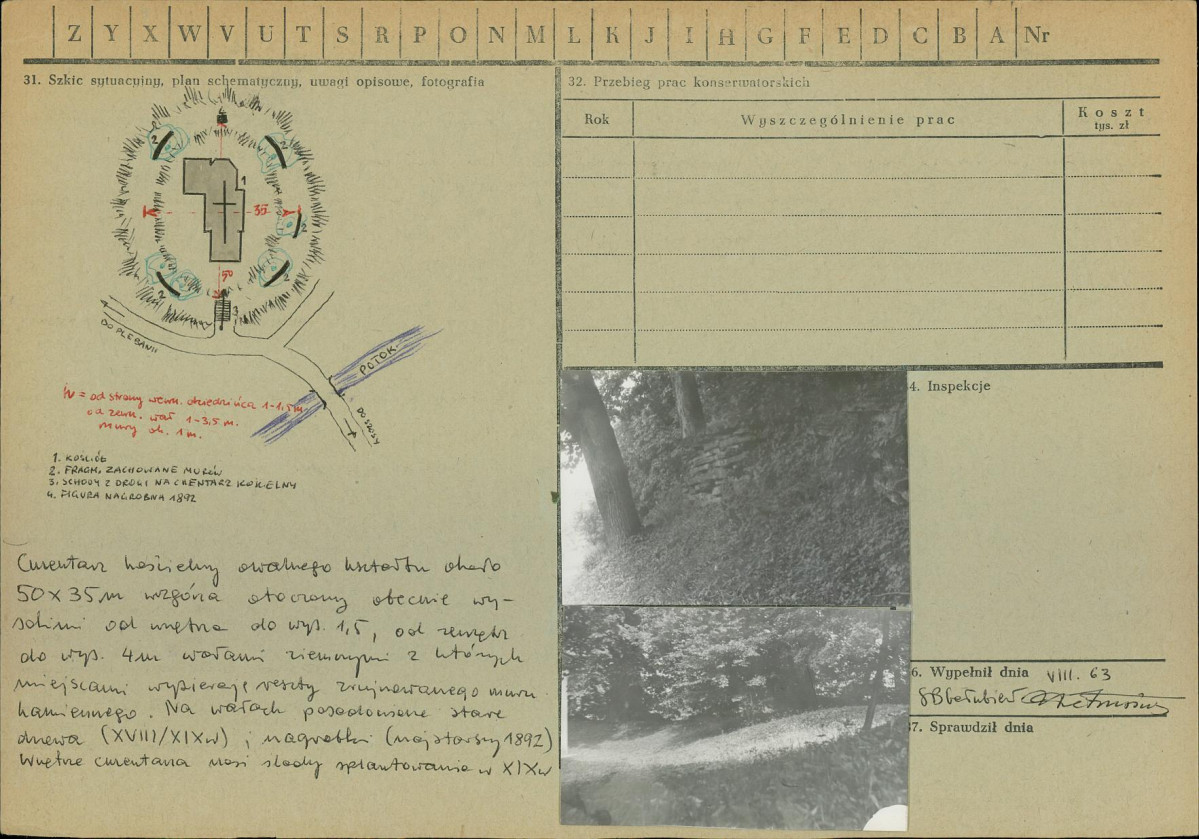 Z Y X W V U T S R P O N M L K J I H G F E D C B A Nr
31. Szkic sytuacyjny, plan schematyczny, uwagi opisowe, fotografia
2
2
1
35
2
50
2
2
3
DO PLEBANII
POTOK
DO SZOSY
h = od strony wewn. dziedzińca 1-1,5 m.
od zewn. wał 1-3,5 m.
mury ok. 1 m.
1. KOŚCIÓŁ
2. FRAGM. ZACHOWANE MURÓW
3. SCHODY Z DROGI NA CMENTARZ KOŚCIELNY
4. FIGURA NAGROBNA 1892
Cmentarz kościelny owalnego kształtu około
50 x 35 m wzgórza otoczony obecnie wy-
sokimi od wnętrza do wys. 1,5, od zewnątrz
do wys. 4m wałami ziemnymi z których
miejscami wyzierają resztki zrujnowanego muru
kamiennego. Na wałach posadowione stare
drzewa (XVIII/XIXw) i nagrobki (najstarszy 1892)
Wnętrze cmentarza nosi ślady splantowania w XIXw
32. Przebieg prac konserwatorskich
Rok
Wyszczególnienie prac
Koszt
tys. zł
4. Inspekcje
6. Wypełnił dnia VIII. 63
7. Sprawdził dnia